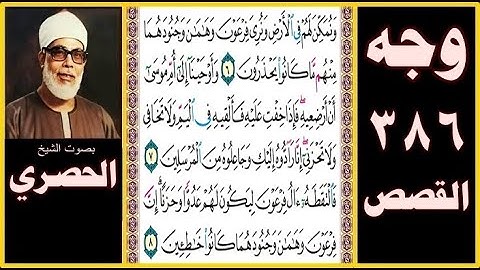 وجه
٣٨٦
القصص
وَنُمَكِّنَ لَهُمْ فِي الْأَرْضِ وَنُرِيَ فِرْعَوْنَ وَهَامَانَ وَجُنُودَهُمَا
مِنْهُم مَّا كَانُوا يَحْذَرُونَ ٦ وَأَوْحَيْنَا إِلَىٰ أُمِّ مُوسَىٰ
أَنْ أَرْضِعِيهِ فَإِذَا خِفْتِ عَلَيْهِ فَأَلْقِيهِ فِي الْيَمِّ وَلَا تَخَافِي
وَلَا تَحْزَنِي إِنَّا رَادُّوهُ إِلَيْكِ وَجَاعِلُوهُ مِنَ الْمُرْسَلِينَ ٧
فَالْتَقَطَهُ آلُ فِرْعَوْنَ لِيَكُونَ لَهُمْ عَدُوًّا وَحَزَنًا إِنَّ
فِرْعَوْنَ وَهَامَانَ وَجُنُودَهُمَا كَانُوا خَاطِئِينَ ٨
بصوت الشيخ
الحصري